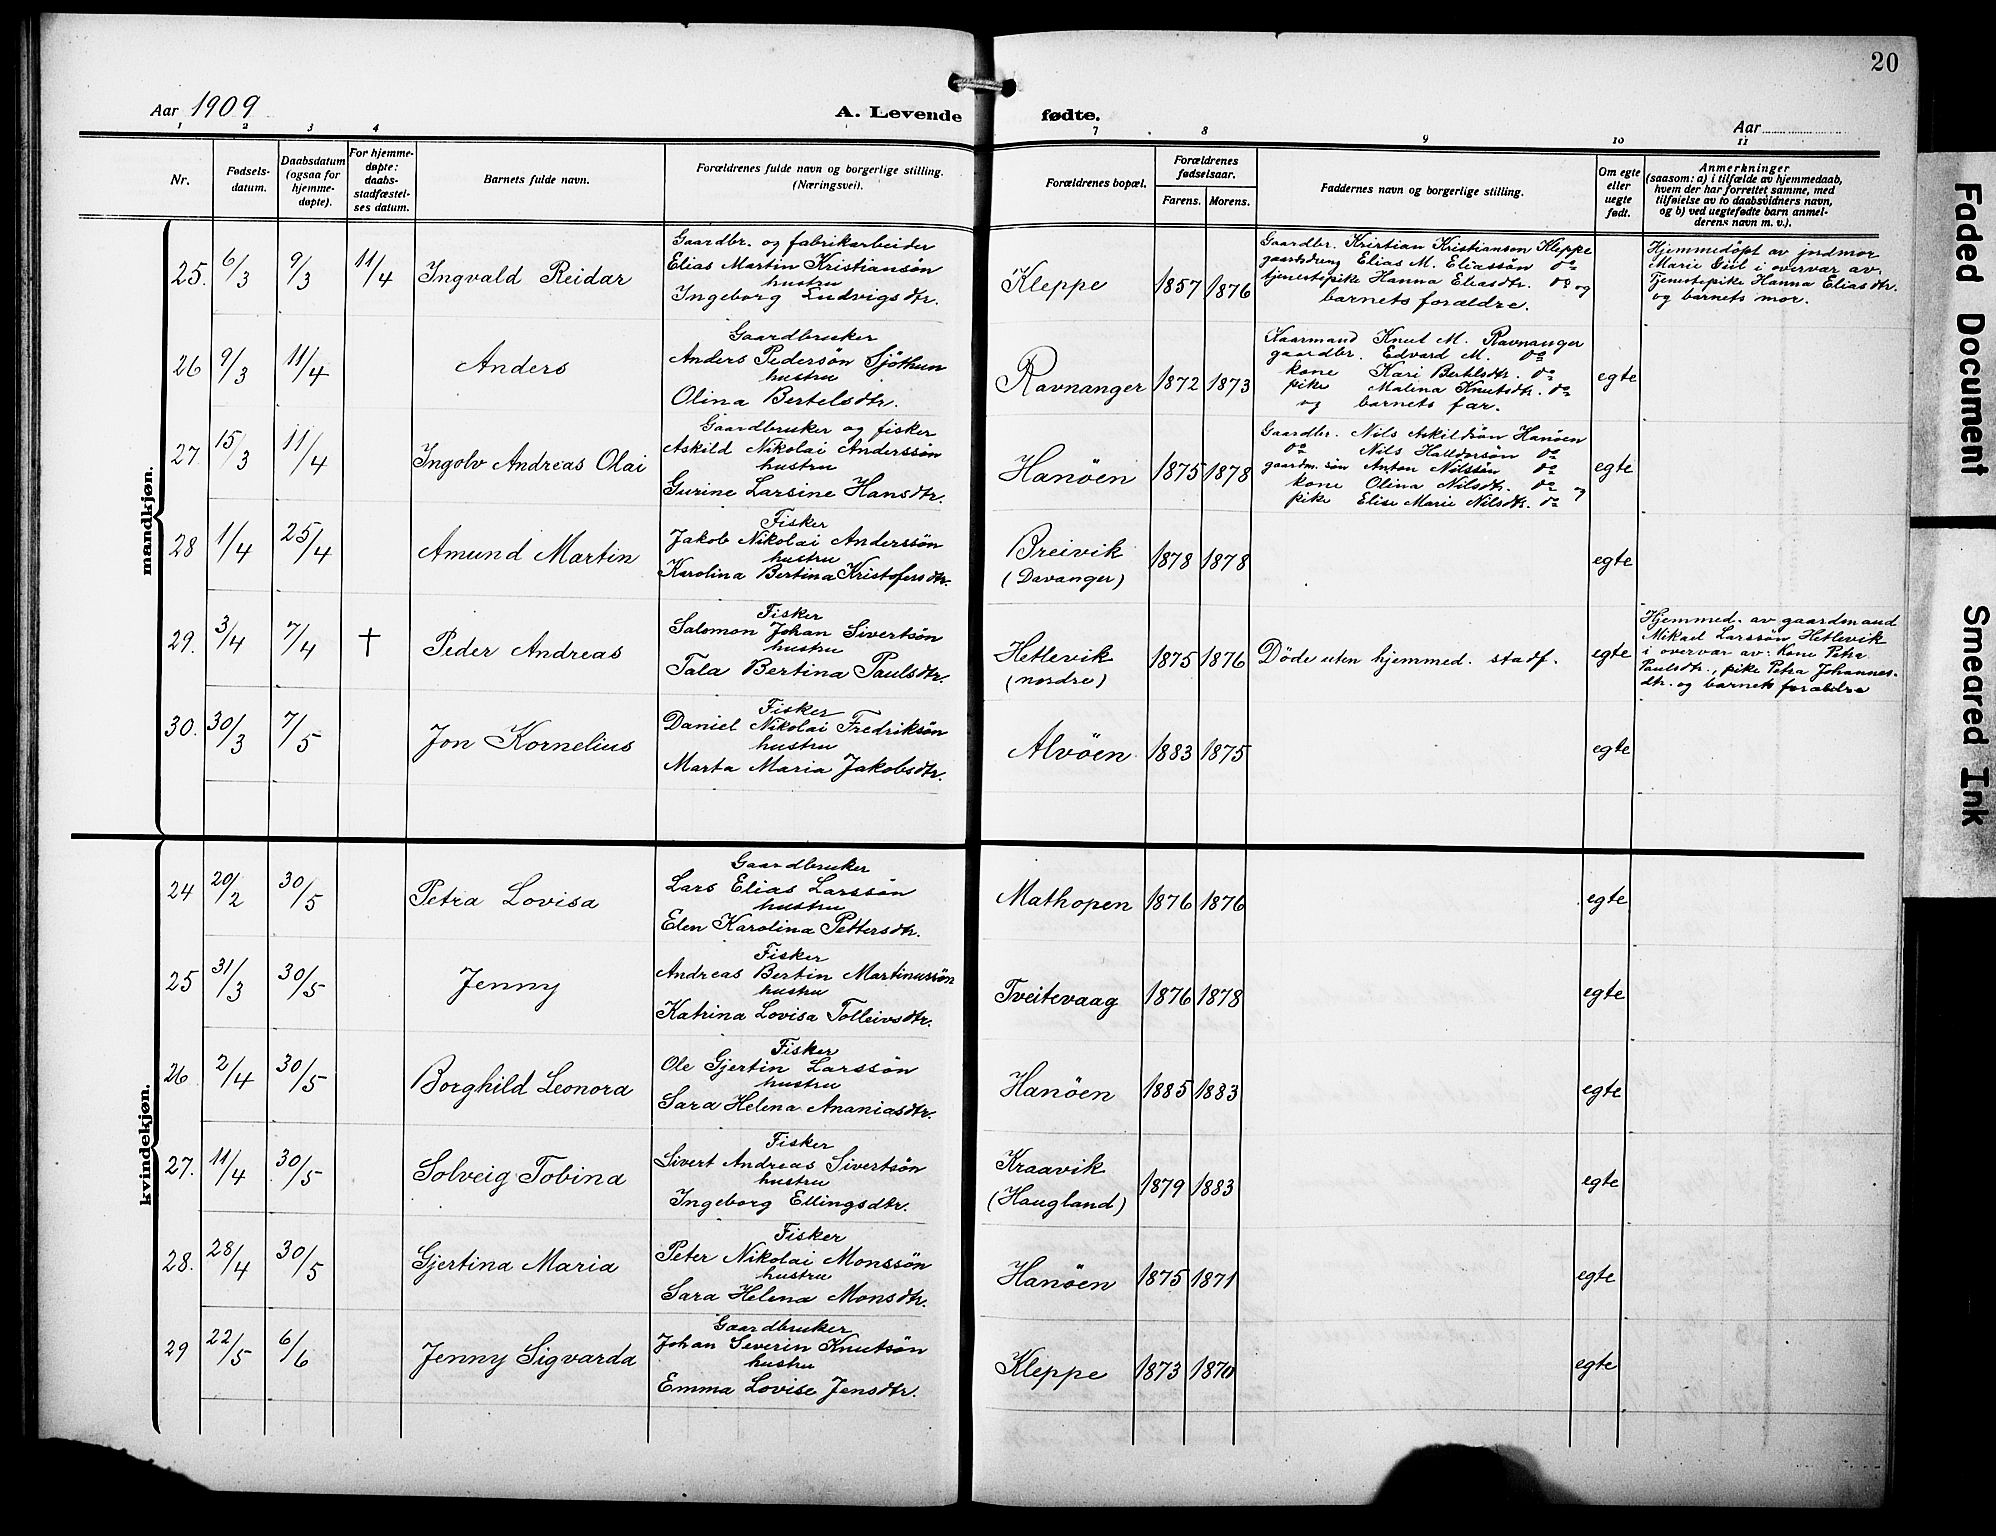 20
Aar 1909
A. Levende fødte.
Aar
1 2 3 4 7 8 9 10 11
Nr.
Fødsels-
datum.
Daabsdatum
(ogsaa for
hjemme-
døpte).
For hjemme-
døpte:
daabs-
stadfæstel-
ses datum.
Barnets fulde navn.
Forældrenes fulde navn og borgerlige stilling.
(Næringsvei).
Forældrenes bopæl.
Forældrenes
fødselsaar.
Farens. Morens.
Faddernes navn og borgerlige stilling.
Om egte
eller
uegte
født.
Anmerkninger
(saasom: a) i tilfælde av hjemmedaab,
hvem der har forrettet samme, med
tilføielse av to daabsvidners navn,
og b) ved uegtefødte barn anmel-
derens navn m. v.).
mandkjøn.
25. 6/3 9/3 11/4 Ingvald Reidar
Gaardbr. og fabrikarbeider
Elias Martin Kristiansön
hustru
Ingeborg Ludvigsdtr.
Kleppe 1857 1876
Gaardbr. Kristian Kristianson Kleppe
gaardsdreng Elias M. Eliassön do
tjenestepike Hanna Eliasdtr. do og
barnets forældre.
Hjemmedöpt av jordmor
Marie Giil i overvær av
Tjenestepike Hanna Eliasdtr.
og barnets mor.
26 9/3 11/4 Anders
Gaardbruker
Anders Pedersön Sjöthun
hustru
Olina Bertelsdtr.
Ravnanger 1872 1873
Kaarmand Knut M. Ravnanger
gaardbr. Edvard M. do
kone Kari Bertelsdtr. do
pike Malina Knutsdtr. do
og barnets far.
egte
27. 15/3 11/4 Ingolv Andreas Olai
Gaardbruker og fisker
Askild Nikolai Anderssön
hustru
Gurine Larsine Hansdtr.
Hanöen 1875 1878
Gaardbr. Nils Askildsön Hanöen
do Nils Halldorsön do
gaardm. søn Anton Nilssön do
kone Olina Nilsdtr. do og
pike Elise Marie Nilsdtr. do
egte
28 1/4 25/4 Amund Martin
Fisker
Jakob Nikolai Anderssön
hustru
Karolina Bertina Kristofersdtr.
Breivik
(Davanger)
1878 1878 egte
29. 3/4 7/4 † Peder Andreas
Fisker
Salomon Johan Sivertsön
hustru
Tala Bertina Paulsdtr.
Hetlevik
(nordre)
1875 1876 Döde uten hjemmed. stadf. egte
Hjemmed. av gaardmand
Mikael Larssön Hetlevik
i overvær av: Kone Petra
Paulsdtr., pike Petra Johannes-
dtr. og barnets forældre
30. 30/3 7/5 Jon Kornelius
Fisker
Daniel Nikolai Fredriksön
hustru
Marta Maria Jakobsdtr.
Alvöen 1883 1875 egte
kvindekjøn.
24 20/2 30/5 Petra Lovisa
Gaardbruker
Lars Elias Larssön
hustru
Elen Karolina Pettersdtr.
Mathopen 1876 1876 egte
25 31/3 30/5 Jenny
Fisker
Andreas Bertin Martinussön
hustru
Katrina Lovisa Tolleivsdtr.
Tveitevaag 1876 1878 egte
26 2/4 30/5 Borghild Leonora
Fisker
Ole Gjertin Larssön
hustru
Sara Helena Ananiasdtr.
Hanöen 1885 1883 egte
27. 11/4 30/5 Solveig Tobina
Fisker
Sivert Andreas Sivertsön
hustru
Ingeborg Ellingsdtr.
Kraavik
(Haugland)
1879 1883 egte
28. 28/4 30/5 Gjertina Maria
Fisker
Peter Nikolai Monssön
hustru
Sara Helena Monsdtr.
Hanöen 1875 1871 egte
29 22/5 6/6 Jenny Sigvarda
Gaardbruker
Johan Severin Knutsön
hustru
Emma Lovise Jensdtr.
Kleppe 1873 1870 egte
Faded Document
Smeared Ink